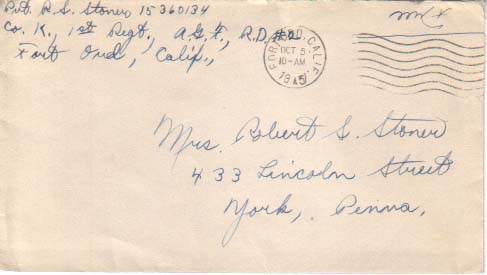 Pvt. R. S. Stoner 15360134
Co. K., 1st Regt., A.G.F., R.D. #2
Fort Ord, Calif.,
Free
FORT ORD, CALIF.
OCT 5
10-AM
1945
Mrs. Robert S. Stoner
433 Lincoln Street
York, Penna.